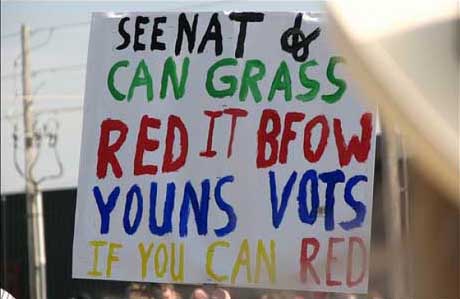 SEE NAT &
CAN GRASS &
RED IT BFOW
YOUNS VOTS
IF YOU CAN RED